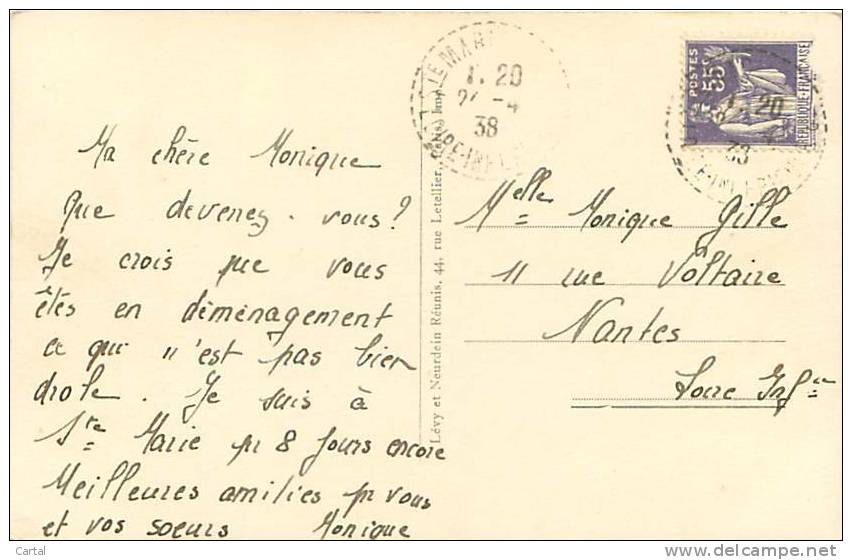 Ma chère Monique
Que devenez-vous?
Je crois que vous
êtes en déménagement
ce qui n'est pas bien
drole. Je suis à
Ste Marie pr 8 jours encore
Meilleures amitiés pr vous
et vos soeurs Monique
Lévy et Neurdein Réunis, 44, rue Letellier, Paris Imp.
TE MAR
1. 20
2 -4
38
RE-INF
POSTES
55c
REPUBLIQUE-FRANCAISE
20
38
Melle Monique Gille
11 rue Voltaire
Nantes
Loire Infre
Cartal
delcampe.net